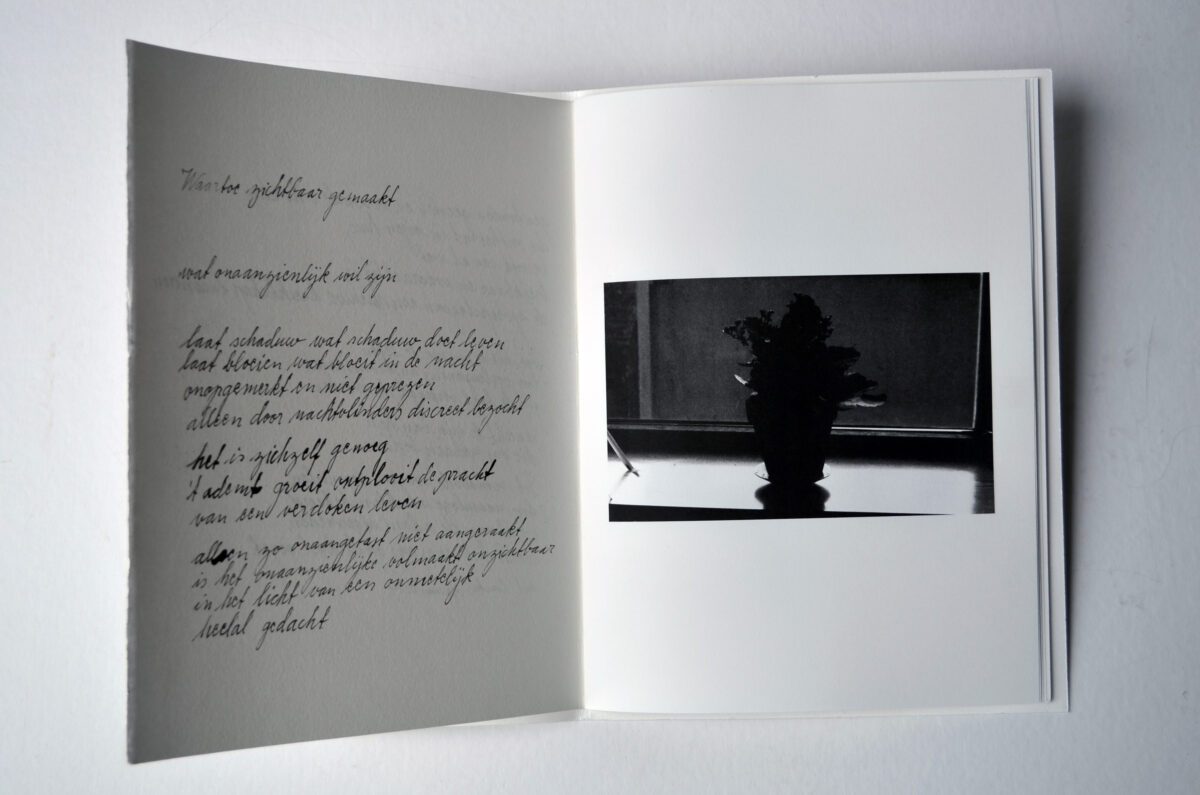 Waartoe zichtbaar gemaakt
wat onaanzienlijk wil zijn
laat schaduw wat schaduw doet leven
laat bloeien wat bloeit in de nacht
onopgemerkt en niet geprezen
alleen door nachtvlinders discreet bezocht
het is zichzelf genoeg
't ademt groeit ontplooit de pracht
van een verdoken leven
alleen zo onaangetast niet aangeraakt
is het onaanzienlijke volmaakt onzichtbaar
in het licht van een onmetelijk
heelal gedacht